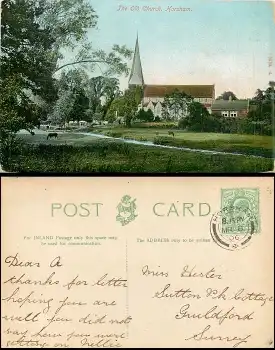 The Old Church, Horsham.
POST CARD.
For INLAND Postage only this space may be used for communication.
The ADDRESS only to be written here.
HORSHAM
Dear A
thanks for letter
hoping you are
well you did not
say how you were
getting on Nellie
Miss Hester
Sutton Pk Cottage
Guildford
Surrey